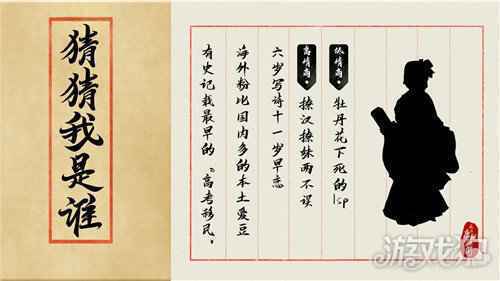 猜猜我是谁
低情商：
牡丹花下死的lsp
高情商：
撩汉撩妹两不误
六岁写诗十一岁早恋
海外粉比国内多的本土爱豆
有史记载最早的“高考移民”